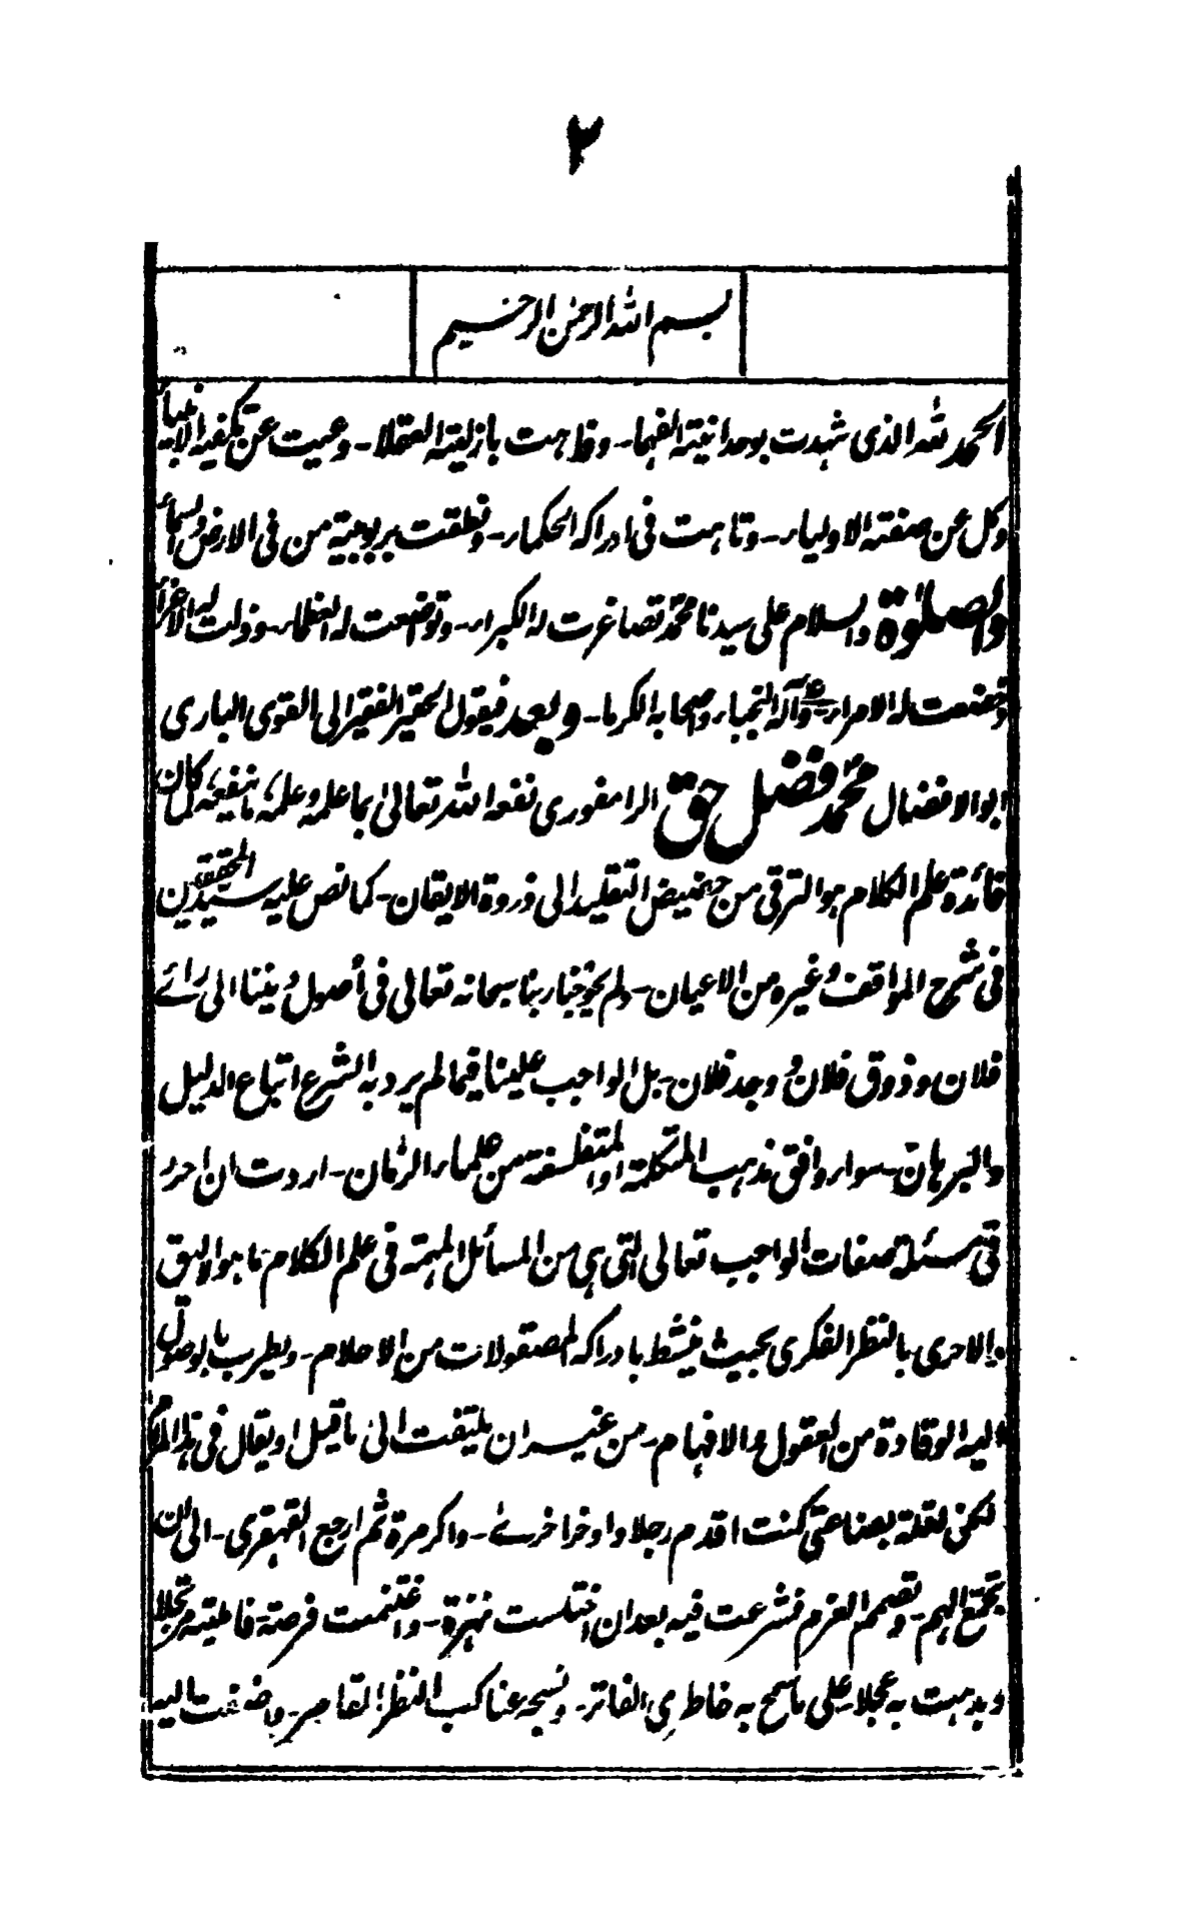 ٢
بسم الله الرحمن الرحيم
الحمد لله الذى شهدت بوحدانيته الفهماء۔ وفاهت بازليته العقلاء۔ وعميت عن تكيفه الانبياء
وكل عن صفته الاولياء۔ وتاهت فى ادراكه الحكماء۔ ونطقت بربوبيته من فى الارض والسماء
والصلوٰة والسلام على سيدنا محمد تصاغرت له الكبراء۔ وتواضعت له العظماء۔ وذلت له الاعزاء
وخضعت له الامراء۔ وآله النجباء واصحابه الكرما۔ وبعد فيقول الحقير الفقير الى القوى البارى
ابو الافضال محمد فضل حق الرامفورى نفعه الله تعالىٰ بما علمه وعلمه ما ينفعه لما كان
فائدة علم الكلام هو الترقى من حضيض التقليد الى ذروة الايقان۔ كما نص عليه سيد المحققين
فى شرح المواقف وغيره من الاعيان۔ ولم يحوجنا ربنا سبحانه تعالى فى أصول ديننا الى رائے
فلان وذوق فلان ووجد فلان۔ بل الواجب علينا فيما لم يرد به الشرع اتباع الدليل
والبرهان۔ سواء وافق مذهب المتكلمة او المتفلسفة من علماء الزمان۔ اردت ان احرر
فى مسئلة صفات الواجب تعالى التى هى من المسائل المهمة فى علم الكلام ما هو الاليق
والاحرى بالنظر الفكرى بحيث ينشط بادراكه المصقولات من الاحلام۔ ويطرب بالوصول
اليه الوقادة من العقول والافهام۔ من غير ان يلتفت الىٰ ما قيل او يقال فى هذا المرام
لكن لقلة بضاعتى كنت اقدم رجلا واوخر اخرىٰ۔ واكر مرة ثم ارجع القهقرى۔ الى ان
تجمع الهمم۔ وتصمم العزم فشرعت فيه بعد ان اختلست نهزة۔ واغتنمت فرصة فامليته مرتجلا
وبدهت به عجلا۔ على ما سمح به خاطرى الفاتر۔ ونسجه عناكب النظر القاصر۔ واضفت اليه